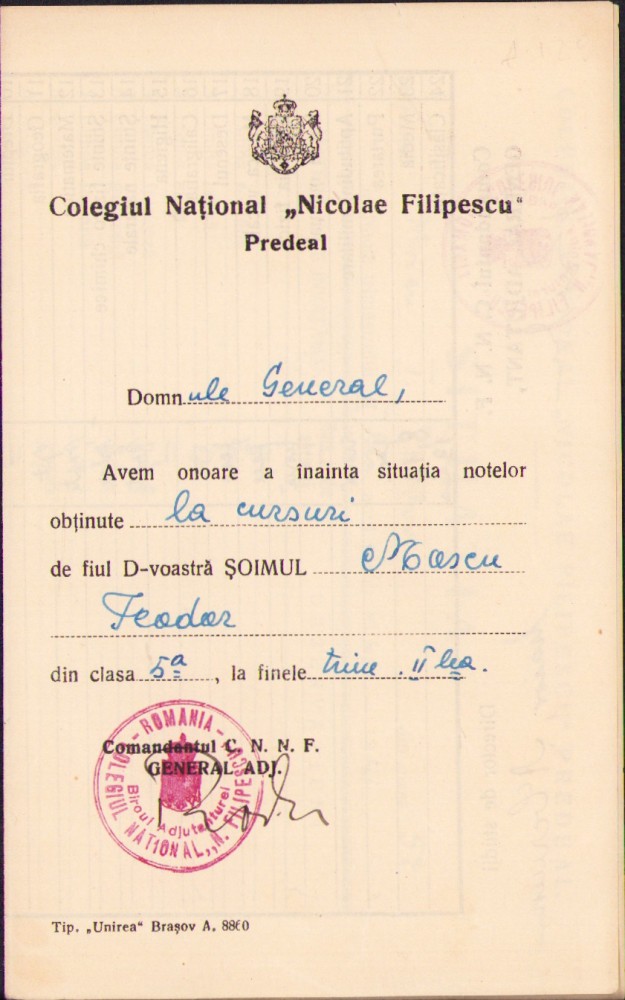 Colegiul Național „Nicolae Filipescu"
Predeal
Domnule General,
Avem onoare a înainta situația notelor
obținute la cursuri
de fiul D-voastră ȘOIMUL Moscu
Teodor
din clasa 5ª, la finele trim. II lea.
Comandantul C. N. N. F.
GENERAL ADJ.
ROMANIA
COLEGIUL NAȚIONAL „N. FILIPESCU"
Biroul Adjutanturei
Tip. „Unirea" Brașov A. 8860